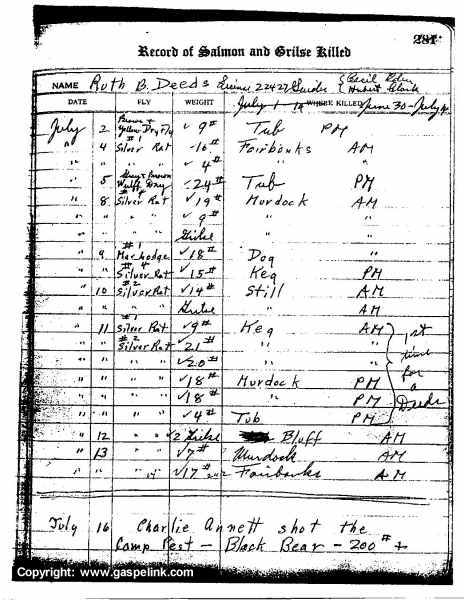 281
Record of Salmon and Grilse Killed
NAME Ruth B. Deeds License 22427 Guides { Cecil
DATE FLY WEIGHT WHERE KILLED June 30 - July
July 2 Brown + Yellow Dry Fly ✓ 9# Tub PM
" 4 #1 Silver Rat -16# Fairbanks AM
" " " ✓ 4# " "
" 5 Gray + Brown Wulff Dry -24# Tub PM
" 8 #4 Silver Rat ✓ 19# Murdock AM
" " " ✓ 9# " "
" " " Grilse "
" 9 #1 Mac Lodge ✓ 18# Dog
" #4 Silver Rat ✓ 15# Keg PM
" 10 #2 Silver Rat ✓ 14# Still AM
" " " " Grilse " AM
" 11 #1 Silver Rat ✓ 9# Keg AM
" #2 Silver Rat ✓ 21# " "
" " " " ✓ 20# " "
" " " " ✓ 18# Murdock PM
" " " " ✓ 18 " PM
" " " " ✓ 4# Tub PM
} 1st time for a Deeds
" 12 " " ✓ 2 Grilse Bluff AM
" 13 " " ✓ 7# Murdock AM
" " " " ✓ 17# Fairbanks AM
July 16 Charlie Annett shot the
Camp Pest - Black Bear - 200# +
Copyright: www.gaspelink.com